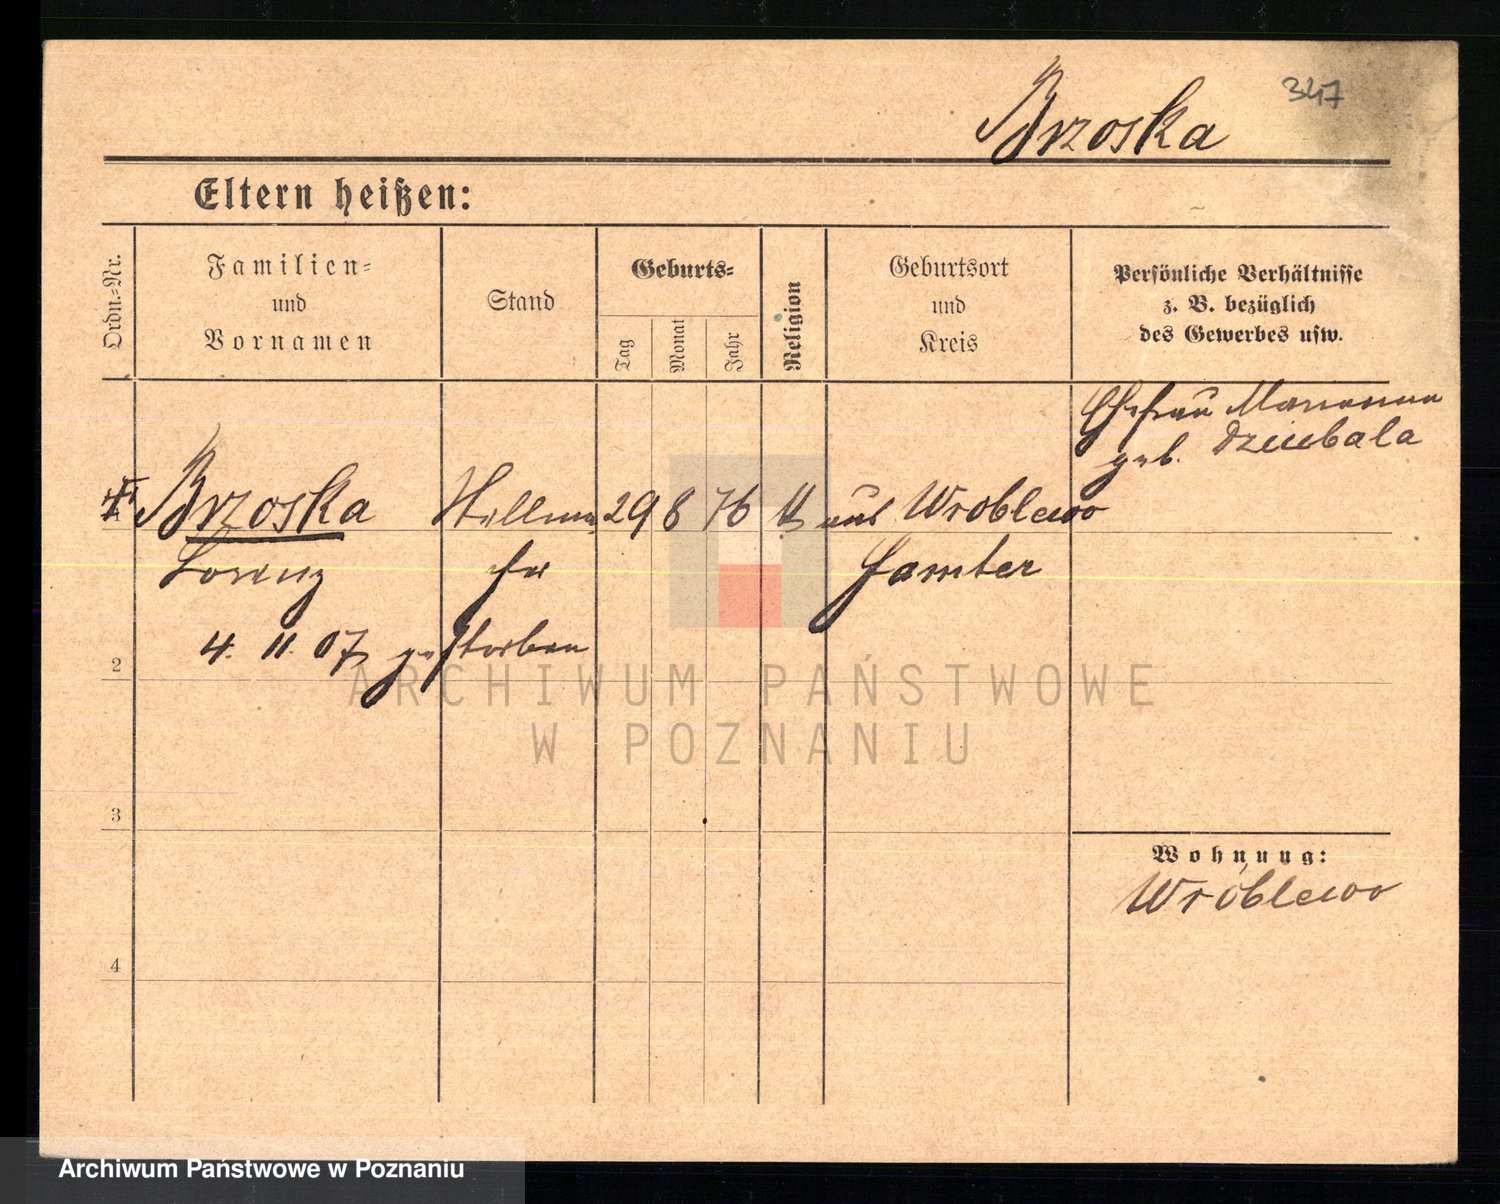 347
Brzoska
Eltern heißen:
Ordn.-Nr.
Familien-
und
Vornamen
Stand
Geburts-
Tag
Monat
Jahr
Religion
Geburtsort
und
Kreis
Persönliche Verhältnisse
z. B. bezüglich
des Gewerbes usw.
Ehefrau Marianna
geb. Dziubala
Brzoska
29 8 76
aus Wroblewo
Lorenz
Samter
4. 11. 07 gestorben
2
ARCHIWUM PAŃSTWOWE
W POZNANIU
3
Wohnung:
Wróblewo
4
Archiwum Państwowe w Poznaniu